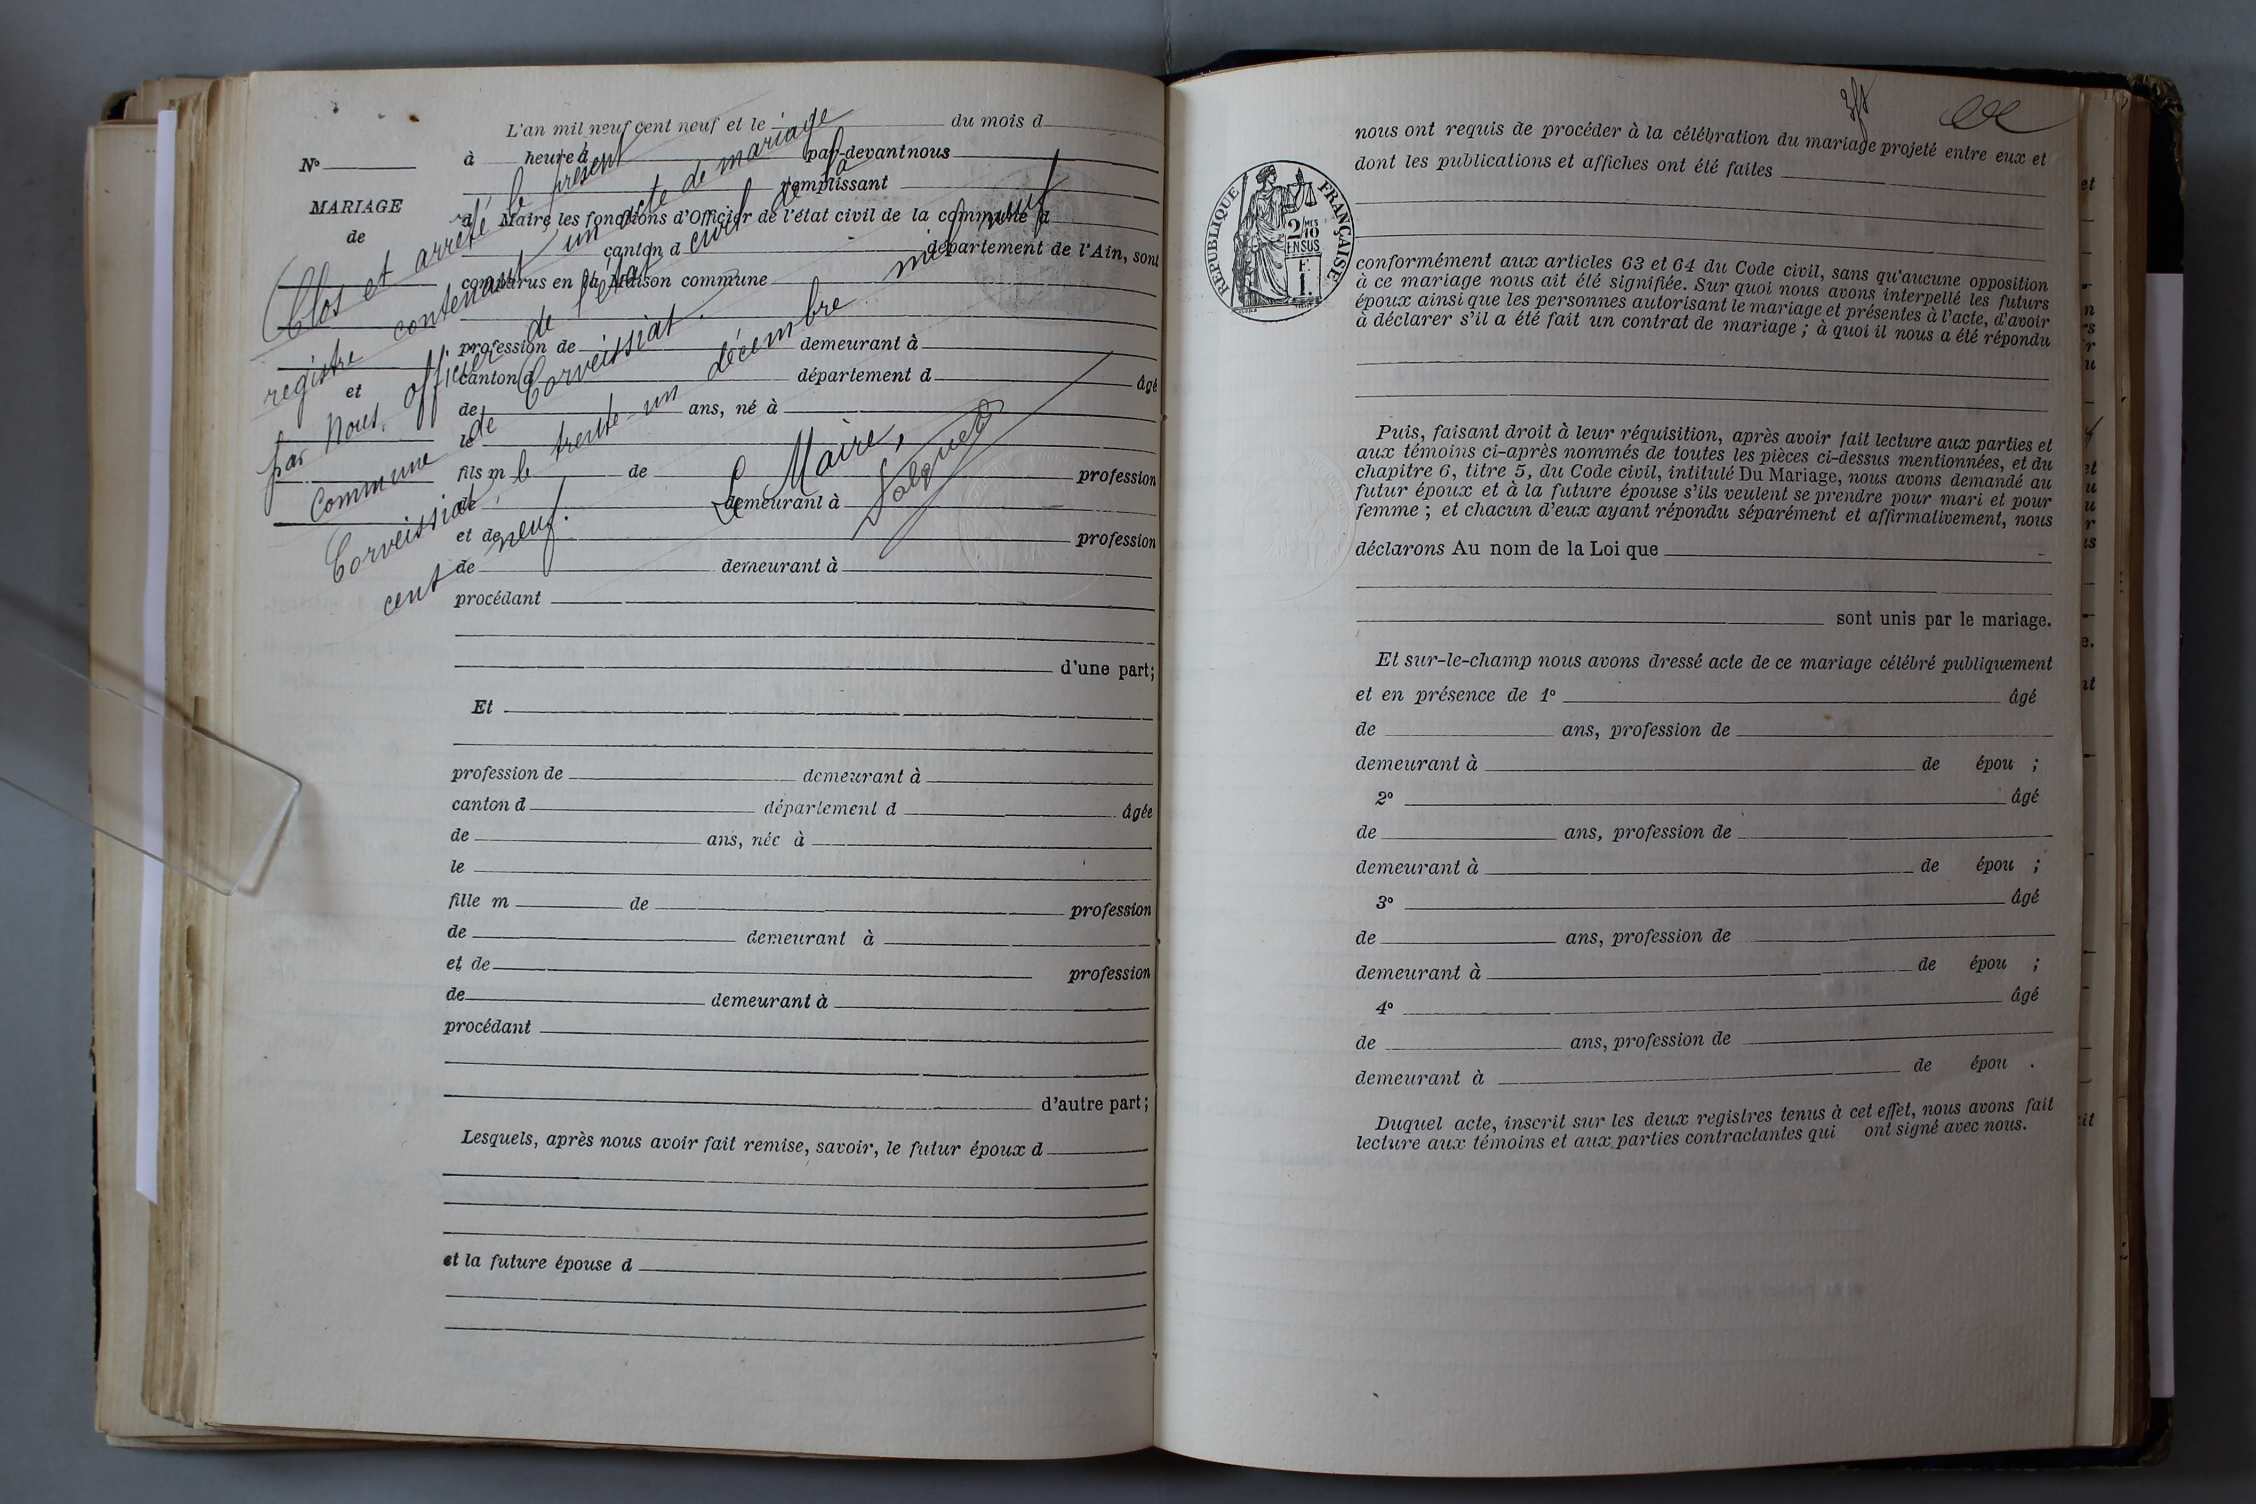 L'an mil neuf cent neuf et le du mois d
No
à heure d par-devant nous
remplissant
MARIAGE
de
d Maire les fonctions d'Officier de l'état civil de la commune d
canton d département de l'Ain, sont
comparus en la Maison commune
profession de demeurant à
et
canton d département d âgé
de ans, né à
le
fils m de profession
de demeurant à
et de profession
de demeurant à
procédant
d'une part;
Et
profession de demeurant à
canton d département d âgée
de ans, née à
le
fille m de profession
de demeurant à
et de profession
de demeurant à
procédant
d'autre part;
Lesquels, après nous avoir fait remise, savoir, le futur époux d
et la future épouse d
Clos et arrêté le présent
registre contenant un acte de mariage
par Nous, officier de l'état civil de la
Commune de Corveissiat.
Corveissiat, le trente-un décembre mil neuf
cent neuf.
Le Maire,
nous ont requis de procéder à la célébration du mariage projeté entre eux et
dont les publications et affiches ont été faites
RÉPUBLIQUE FRANÇAISE
2/10
EN SUS
F.
1.
conformément aux articles 63 et 64 du Code civil, sans qu'aucune opposition
à ce mariage nous ait été signifiée. Sur quoi nous avons interpellé les futurs
époux ainsi que les personnes autorisant le mariage et présentes à l'acte, d'avoir
à déclarer s'il a été fait un contrat de mariage ; à quoi il nous a été répondu
Puis, faisant droit à leur réquisition, après avoir fait lecture aux parties et
aux témoins ci-après nommés de toutes les pièces ci-dessus mentionnées, et du
chapitre 6, titre 5, du Code civil, intitulé Du Mariage, nous avons demandé au
futur époux et à la future épouse s'ils veulent se prendre pour mari et pour
femme ; et chacun d'eux ayant répondu séparément et affirmativement, nous
déclarons Au nom de la Loi que
sont unis par le mariage.
Et sur-le-champ nous avons dressé acte de ce mariage célébré publiquement
et en présence de 1° âgé
de ans, profession de
demeurant à de épou ;
2° âgé
de ans, profession de
demeurant à de épou ;
3° âgé
de ans, profession de
demeurant à de épou ;
4° âgé
de ans, profession de
demeurant à de épou .
Duquel acte, inscrit sur les deux registres tenus à cet effet, nous avons fait
lecture aux témoins et aux parties contractantes qui ont signé avec nous.